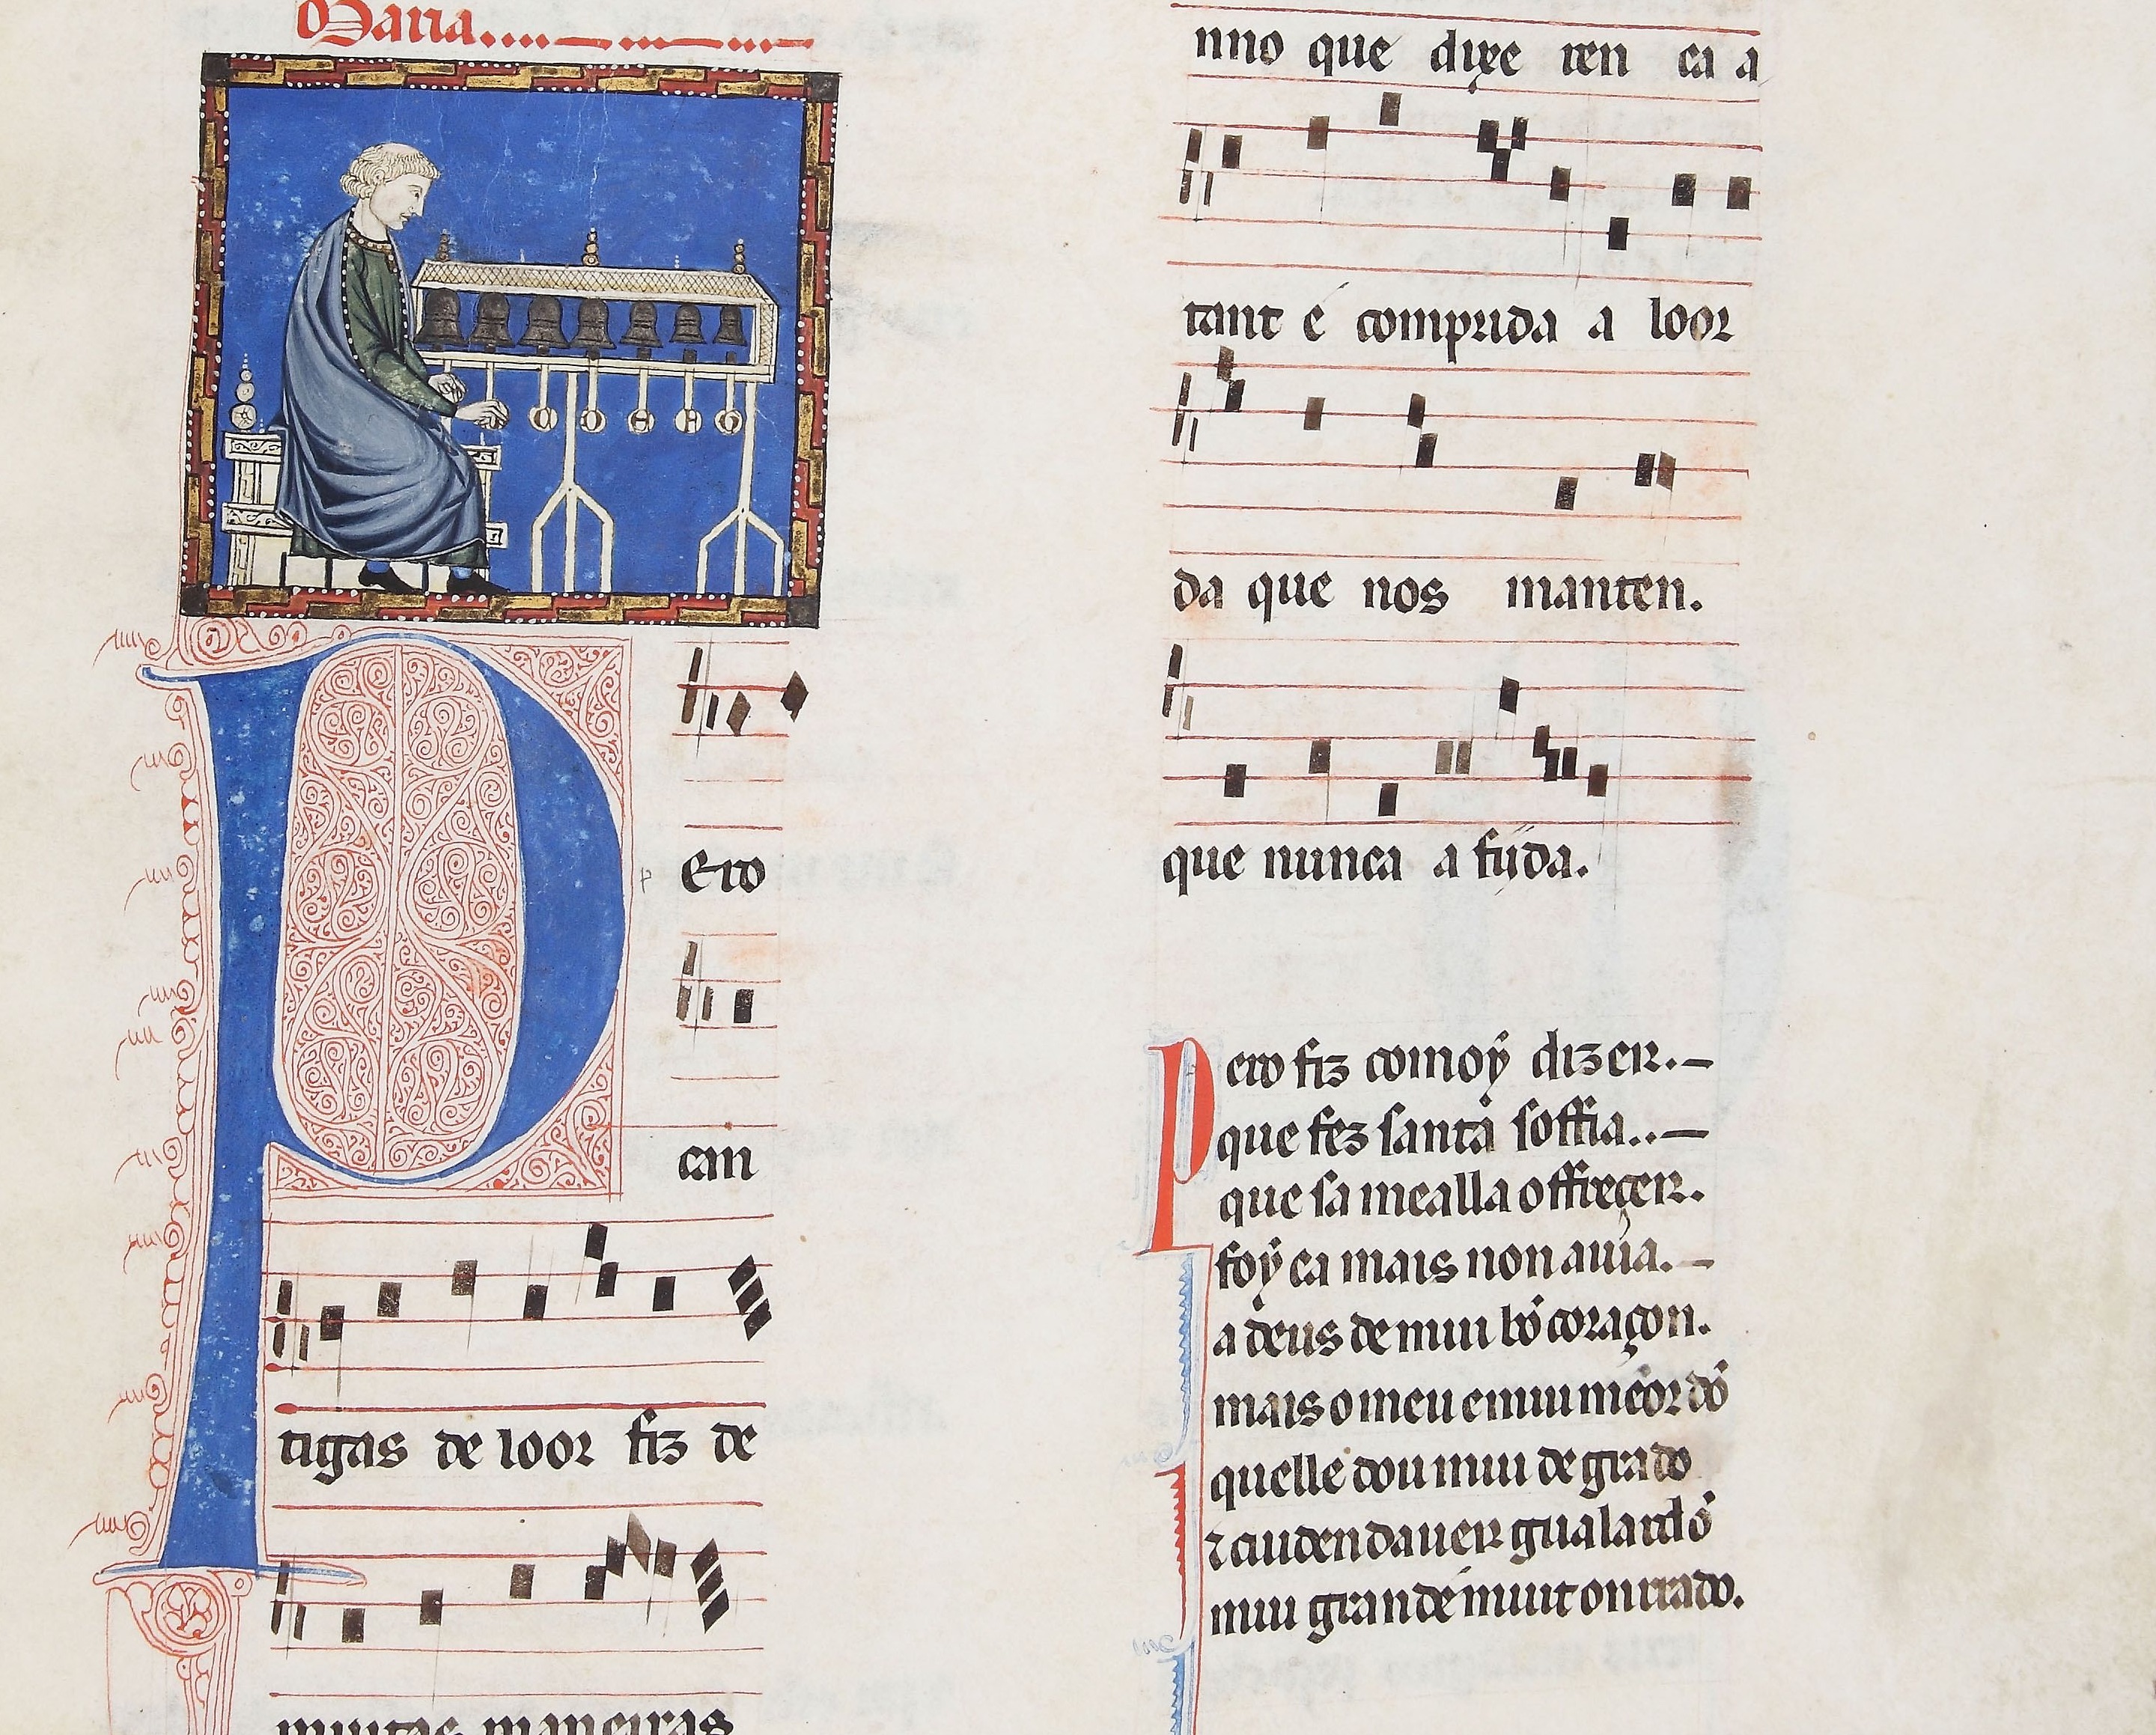 Maria....
Pero
can
tigas de loor fiz de
muitas maneiras
nno que dixe ren ca a
tant é comprida a loor
da que nos manten.
que nunca a fijda.
Pero fiz comoÿ dizer.
que fez santa soffia..
que sa mealla offreçer.
foÿ ca mais non auia.
a deus de mui bõ coraçon.
mais o meu e mui mẽor dõ
quelle dou mui de grado
⁊ cuiden dauer gualardõ
mui grandé muit onrrado.